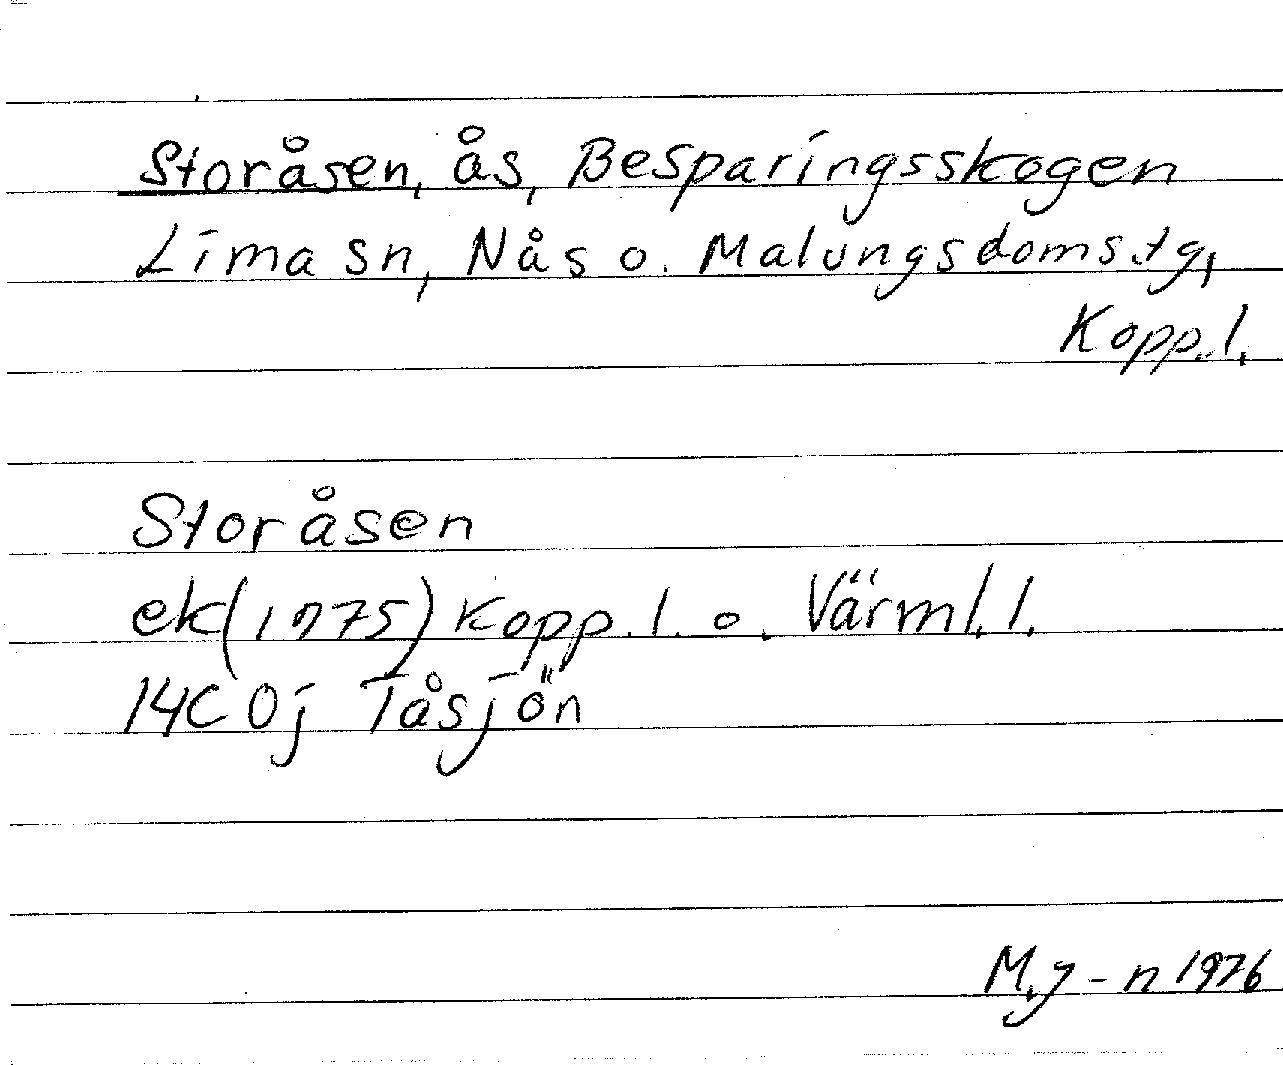 Storåsen, ås, Besparingsskogen
Lima sn, Nås o. Malungs doms.tg,
Kopp.l.
Storåsen
ek(1975) Kopp.l. o. Värml.l.
14C 0j Tåsjön
M.J-n 1976